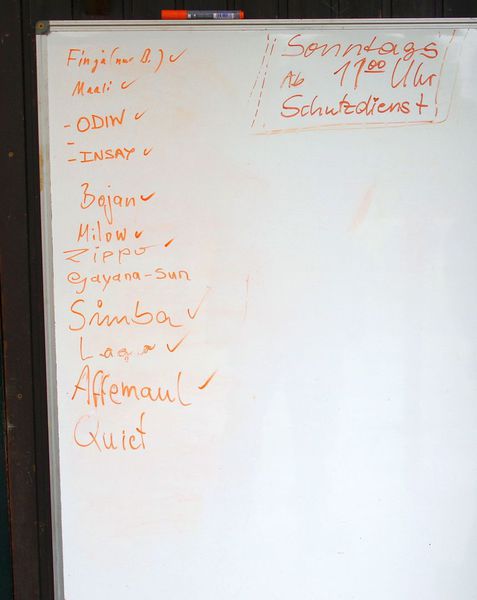 Finja (nur B.) ✓
Maali ✓
- ODIN ✓
- INSAY ✓
Bajan ✓
Milow ✓
Zippo ✓
Gayana-Sun
Simba ✓
Lago ✓
Affemaul ✓
Quiet
!! Sonntags
Ab 11⁰⁰ Uhr
Schutzdienst !